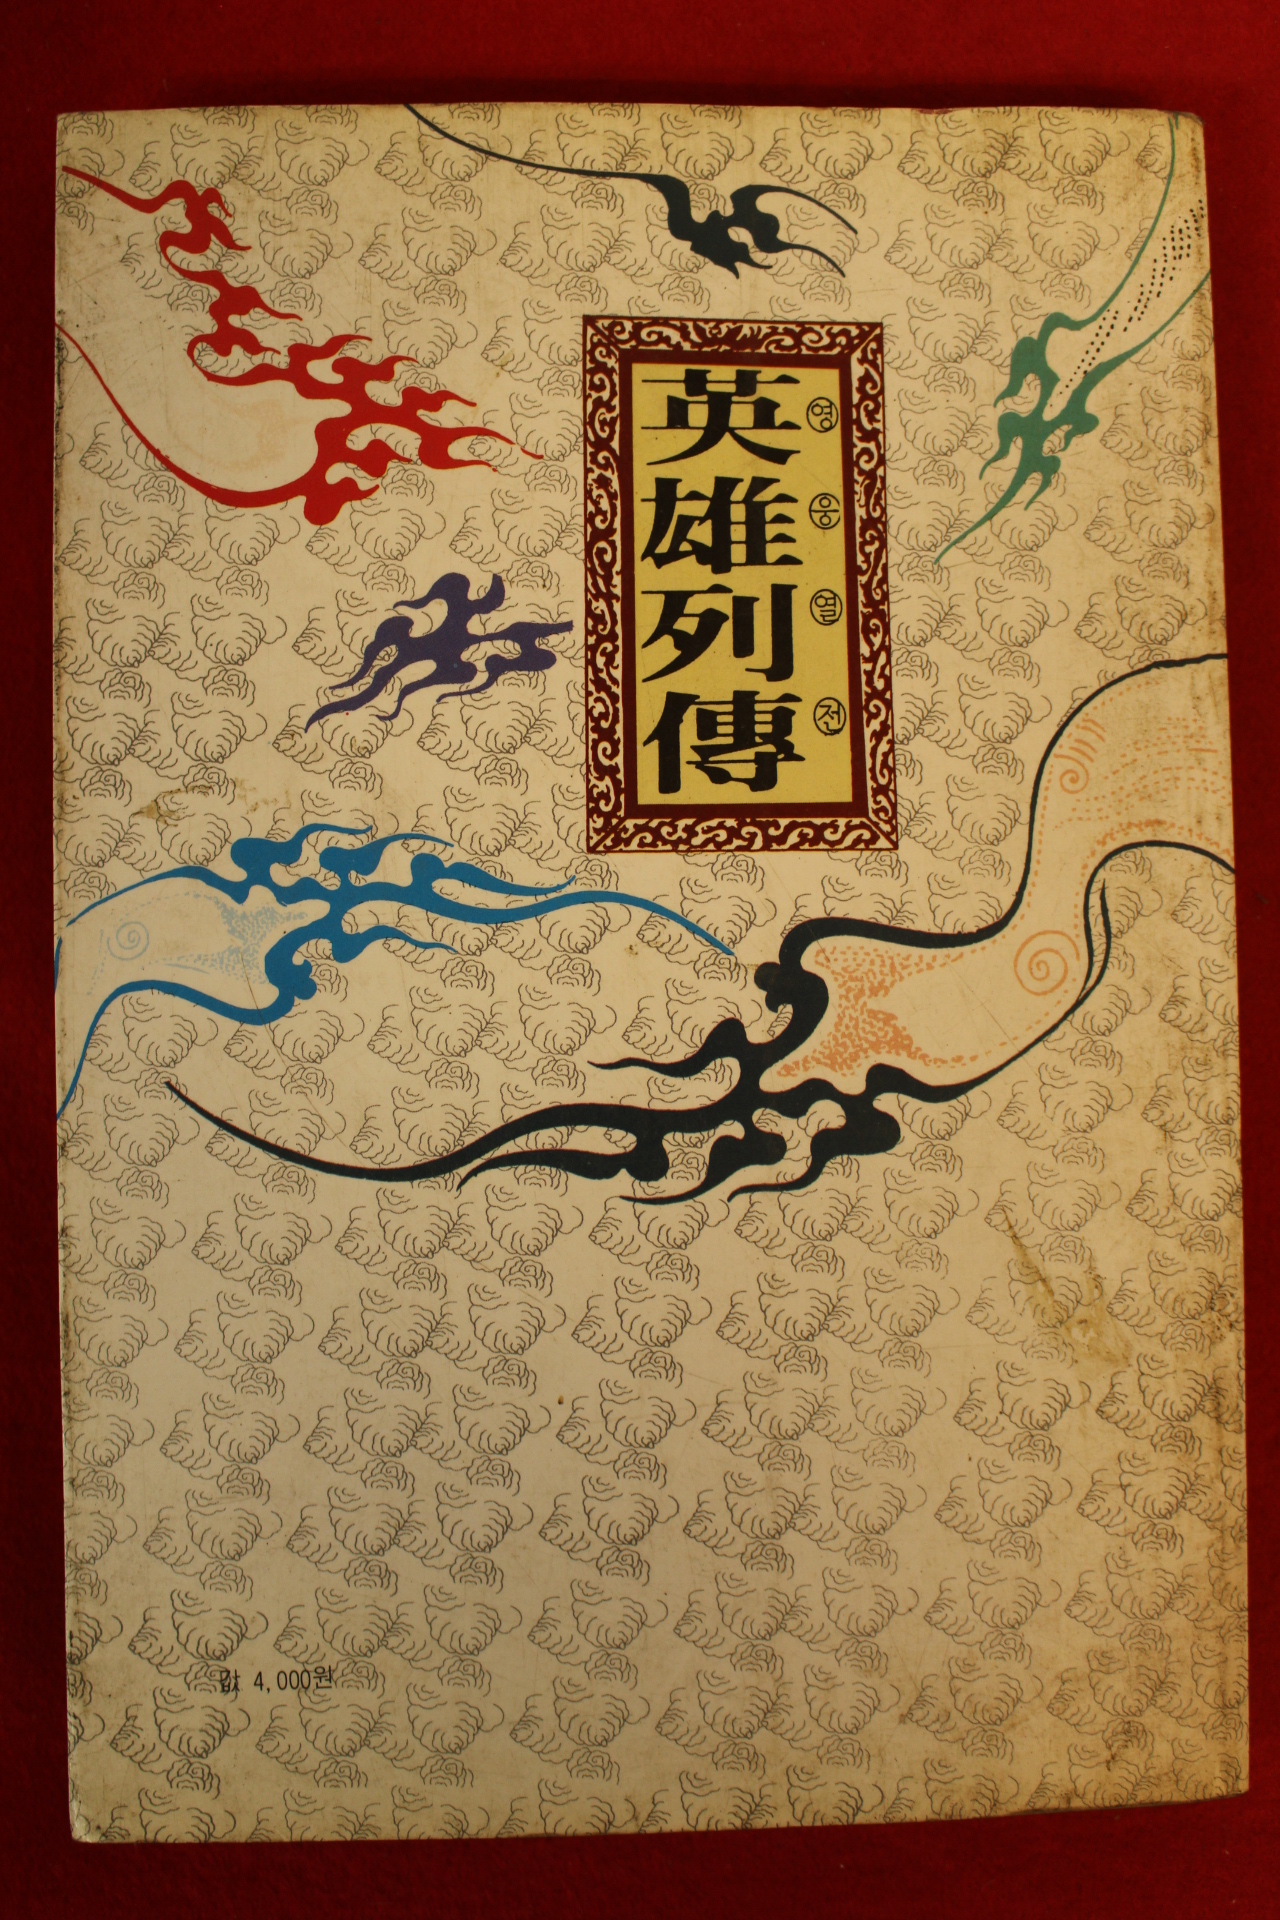 英雄列傳
영웅열전
값 4,000원